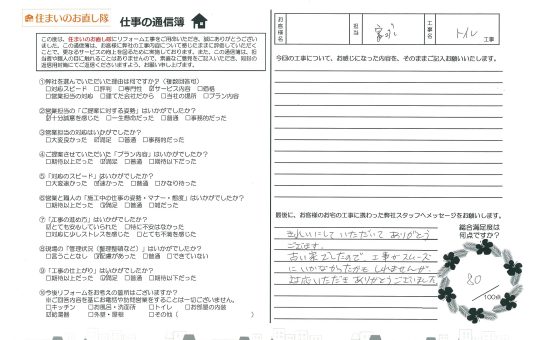 住まいのお直し隊
仕事の通信簿
この度は、住まいのお直し隊にリフォーム工事をご用命いただき、誠にありがとうござい
ました。この通信簿は、お客様に弊社の工事内容について感じたままに評価していただく
ことで、更なるサービスの向上を図るために実施しております。また、この通信簿は、担
当者や職人の目に触れることはありませんので、素直なご意見をご記入いただき、同封の
返信用封筒にてご返信くださいますよう、お願い申し上げます。
①弊社を選んでいただいた理由は何ですか？（複数回答可）
□対応スピード □評判 □専門性 ☑サービス内容 □価格
□営業担当の対応 □建てた会社だから □当社の場所 □プラン内容
②営業担当の「ご提案に対する姿勢」はいかがでしたか？
☑十分誠意を感じた □一生懸命だった □普通 □事務的だった
③営業担当の対応はいかがでしたか？
□大変良かった ☑満足 □普通 □事務的だった
④ご提案させていただいた「プラン内容」はいかがでしたか？
□期待以上だった ☑満足 □普通 □期待以下だった
⑤「対応のスピード」はいかがでしたか？
□大変速かった ☑速かった □普通 □かなり待った
⑥営業と職人の「施工中の仕事の姿勢・マナー・態度」はいかがでしたか？
□期待以上だった ☑満足 □普通 □雑だった
⑦「工事の進め方」はいかがでしたか？
☑とても安心していられた □特に不安はなかった
□対応に少しストレスを感じた □とても不満を感じた
⑧現場の「管理状況（整理整頓など）」はいかがでしたか？
□言うことなし ☑配慮があった □普通 □できていない
⑨「工事の仕上がり」はいかがでしたか？
□期待以上だった ☑満足 □普通 □期待以下だった
⑩今後リフォームをお考えの箇所はございますか？
※ご回答内容を基にお電話や訪問営業をすることは一切ございません。
□キッチン □お風呂・洗面所 □トイレ □お部屋の内装
☑給湯器 □外壁・屋根 □その他（ ）
お客様名
担当
工事名
トイレ
工事
今回の工事について、お感じになった内容を、そのままご記入お願いいたします。
最後に、お客様のお宅の工事に携わった弊社スタッフへメッセージをお願いします。
きれいにして いただいて ありがとう
ございます。
古い家でしたので、工事がスムーズ
にいかなかったかもしれませんが
対応いただき ありがとうございました
総合満足度は
何点ですか？
80
／100点